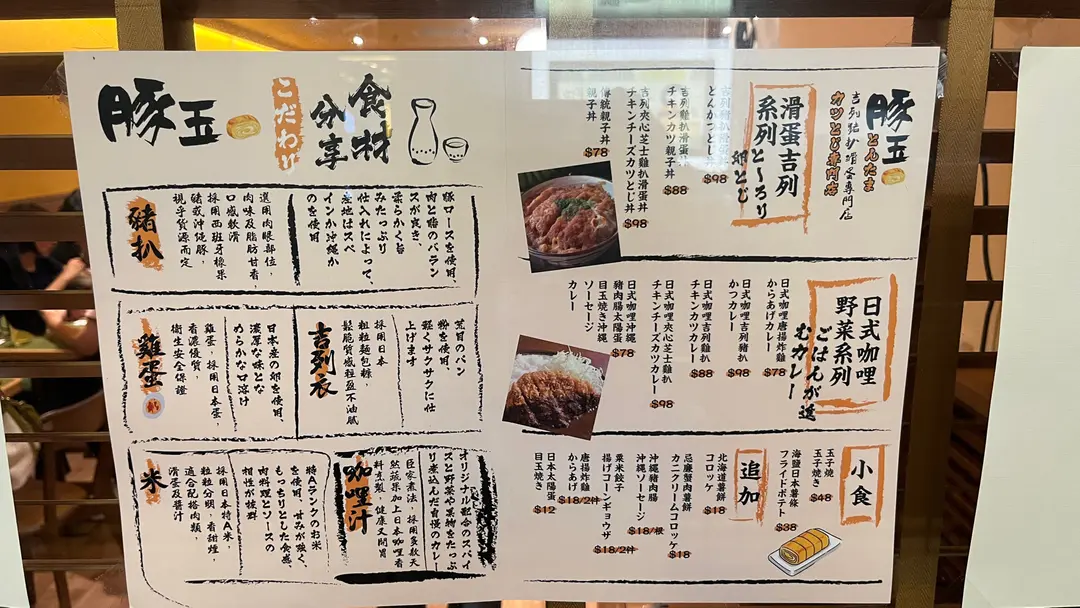 豚玉
とんたま
カツとじ專門店
滑蛋吉列
系列
と〜ろり
卵とじ
とんかつとじ丼
$98
吉列雞扒滑蛋丼
チキンカツ親子丼
$88
吉列夾心芝士雞扒滑蛋丼
チキンチーズカツとじ丼
$98
傳統親子丼
親子丼
$78
日式咖哩
野菜系列
ごはんが進
むカレー
日式咖哩唐揚炸雞
からあげカレー
$78
日式咖哩吉列豬扒
かつカレー
$98
日式咖哩吉列雞扒
チキンカツカレー
$88
日式咖哩夾心芝士雞扒
チキンチーズカツカレー
$98
日式咖哩沖繩
豬肉腸太陽蛋
目玉焼き沖縄
ソーセージ
カレー
$78
小食
玉子燒
玉子焼き
$48
海鹽日本薯條
フライドポテト
$38
追加
北海道薯餅
コロッケ
$18
忌廉蟹肉薯餅
カニクリームコロッケ
$18
沖繩豬肉腸
沖縄ソーセージ
$18/根
粟米餃子
揚げコーンギョウザ
$18/2件
唐揚炸雞
からあげ
$18/2件
日本太陽蛋
目玉焼き
$12
豚玉
こだわり
食材
分享
豚ロースを使用、
肉と脂のバラン
スが良き、
柔らかく旨
みたっぷり
仕入れによって、
産地はスペ
インか沖縄か
のを使用
豬扒
選用肉眼部位，
肉味及脂肪甘香，
口感軟滑
採用西班牙橡果
豬或沖繩豚，
視乎貨源而定
荒目のパン
粉を使用、
軽くサクサクに仕
上げます
採用日本
粗粒麵包糠，
鬆脆質感輕盈不油膩
吉列衣
日本産の卵を使用、
濃厚な味とな
めらかな口溶け
雞蛋，採用日本蛋，
香濃優質，
衛生安全保證
雞蛋
オリジナル配合のスパイ
スと野菜や果物をたっぷ
り煮込んだ自慢のカレー
然蔬果加上日本咖喱香
料烹製，健康又開胃
咖哩汁
特Aランクのお米
を使用、甘みが強く、
もっちりとした食感
肉料理とソースの
相性が抜群
採用日本特A米，
粒粒分明，香甜煙，
適合配搭肉類，
滑蛋及醬汁
米